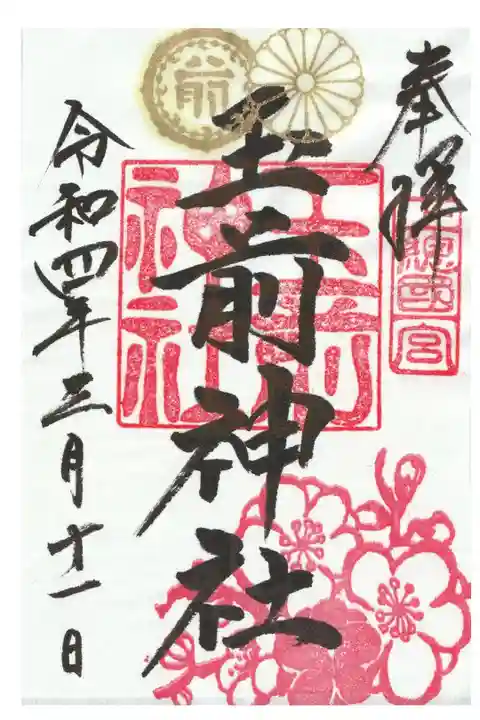 奉拝
玉前神社
令和四年三月十一日
玉前
神社
前